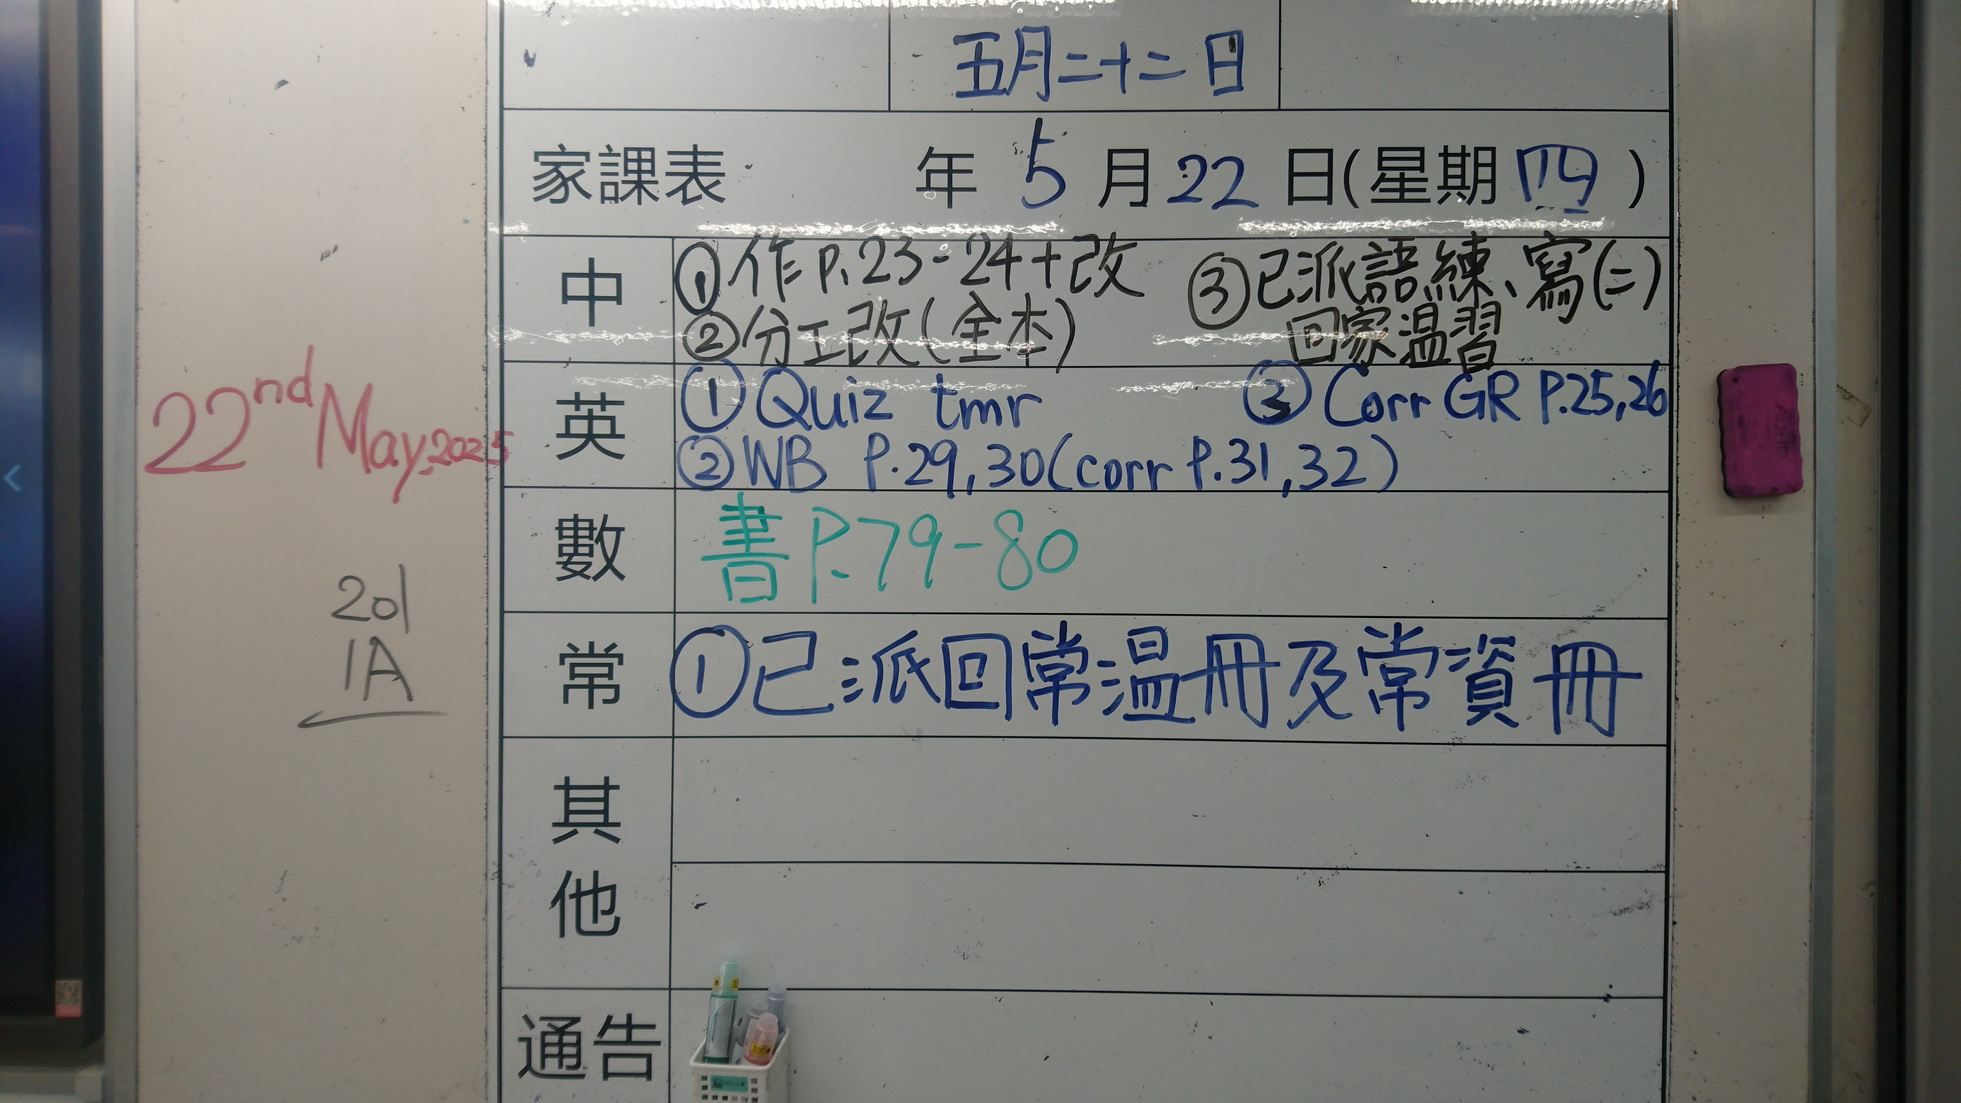 五月二十二日
家課表 年 5 月 22 日(星期 四 )
中
①作 P.23-24+改
②分工改(全本)
③已派語練、寫(二)
回家温習
英
①Quiz tmr
②WB P.29,30(corr P.31,32)
③Corr GR P.25,26
數
書P.79-80
常
①已派回常温冊及常資冊
其他
通告
22nd May,2025
201
1A